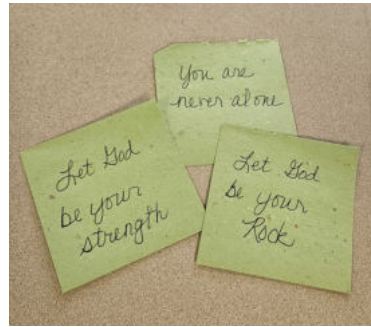 You are
never alone
Let God
be your
strength
Let God
be your
Rock